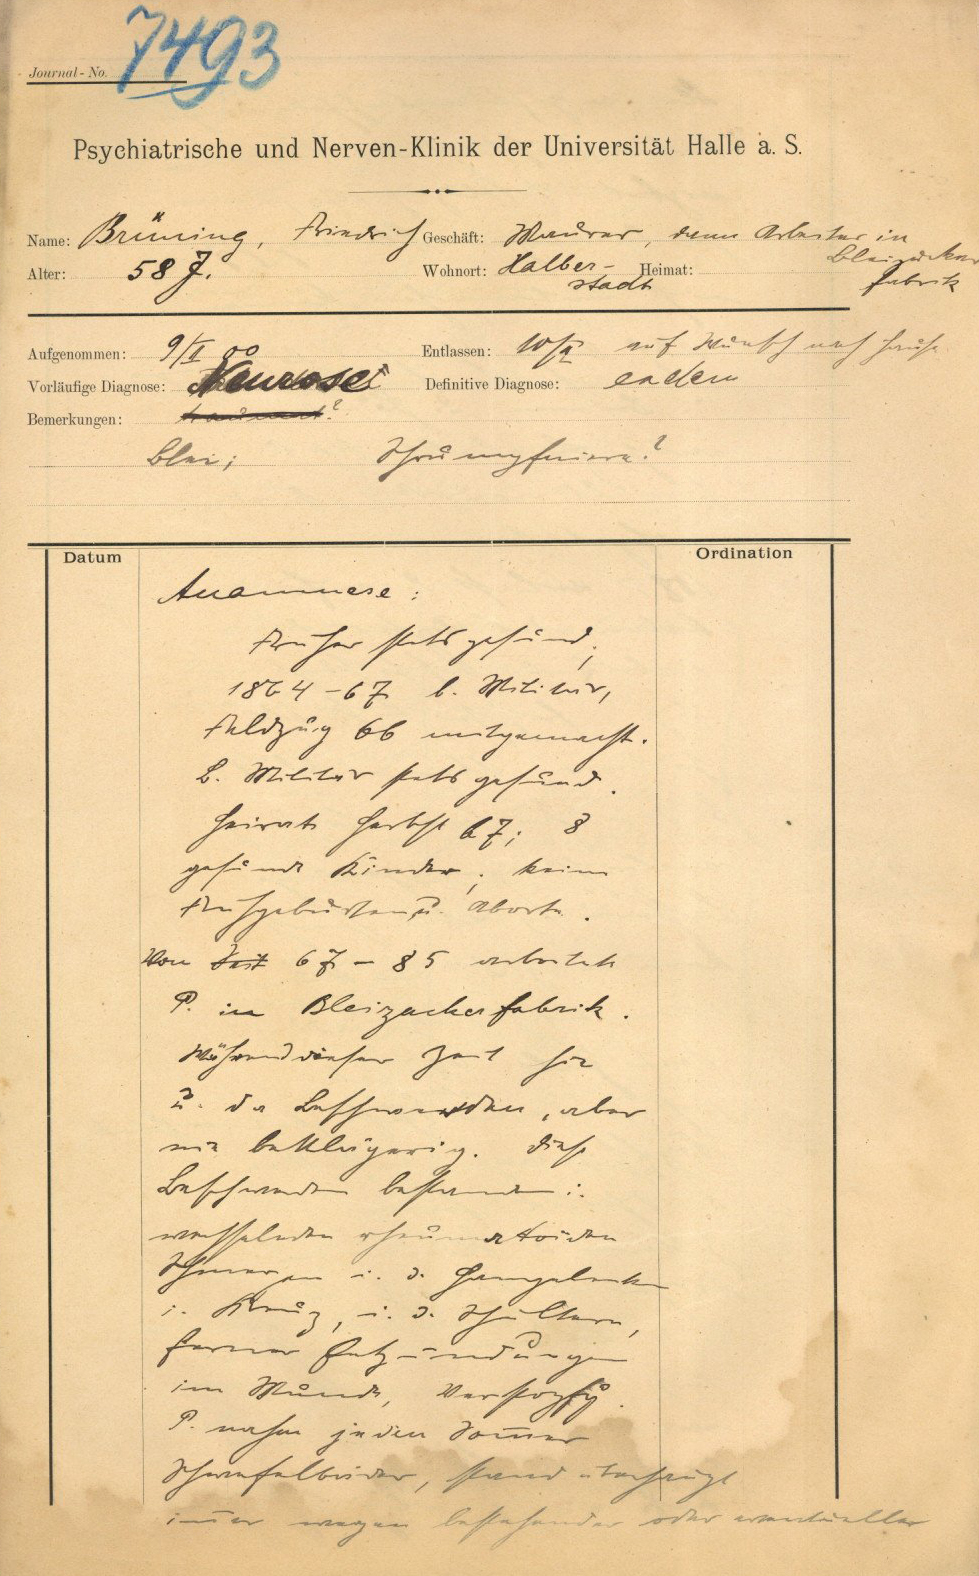 Journal-No. 7493
Psychiatrische und Nerven-Klinik der Universität Halle a. S.
Name: Brüning, Friedrich Geschäft: Maurer, dann Arbeiter in
Bleizucker
fabrik
Alter: 58 J. Wohnort: Halber- Heimat:
stadt
Aufgenommen: 9/II 00 Entlassen: 10/II auf Wunsch nach Hause
Vorläufige Diagnose: Neurose Definitive Diagnose: eadem
Bemerkungen: ?
Blei; Schrumpfniere?
Datum Ordination
Anamnese:
Früher stets gesund,
1864-67 b. Militär,
Feldzug 66 mitgemacht.
B. Militär stets gesund.
Heirat Herbst 67; 8
gesunde Kinder, keine
Frühgeburten u. Aborte.
Von Seit 67-85 arbeitete
P. in Bleizuckerfabrik.
Während dieser Zeit hie
u. da Beschwerden, aber
nie bettlägerig. Diese
Beschwerden bestanden i.
wechselnden rheumatoiden
Schmerzen i. d. Handgelenken
i. Kreuz, i. d. Schultern,
ferner Entzündungen
im Munde, Verstopfg.
P. nahm jeden Sommer
Schwefelbäder, stand überhaupt
immer wegen bestehender oder eventueller